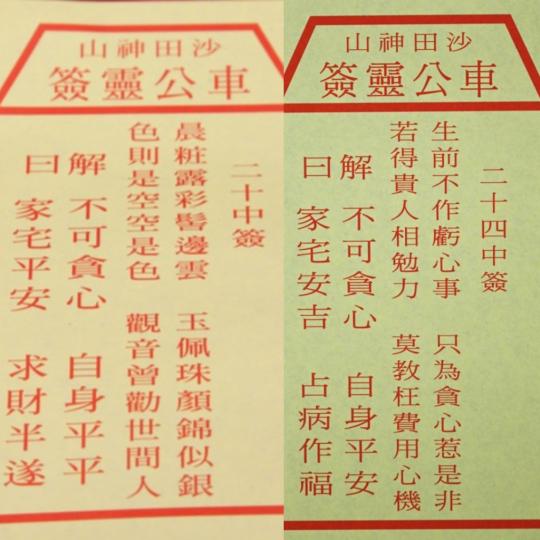 沙田神山
車公靈簽
二十中簽
晨粧露彩髻邊雲 玉佩珠顏錦似銀
色則是空空是色 觀音曾勸世間人
解 不可貪心 自身平平
曰 家宅平安 求財半遂
沙田神山
車公靈簽
二十四中簽
生前不作虧心事 只為貪心惹是非
若得貴人相勉力 莫教枉費用心機
解 不可貪心 自身平安
曰 家宅安吉 占病作福